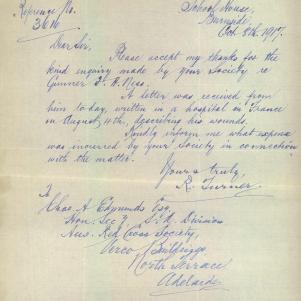 Reference No.
3616
School House,
Burnside,
Oct. 8th. 1917.
Dear Sir,
Please accept my thanks for the
kind enquiry made by your Society re
Gunner
A letter was received from
him to-day, written in a hospital in France
on August 4th, describing his wounds.
Kindly inform me what expense
was incurred by your Society in connection
with the matter.
Yours truly,
R. Turner.
To
Chas. A. Edmunds Esq.
Hon. Secy. S.A. Division
Aus. Red Cross Society,
Verco Buildings
North Terrace
Adelaide